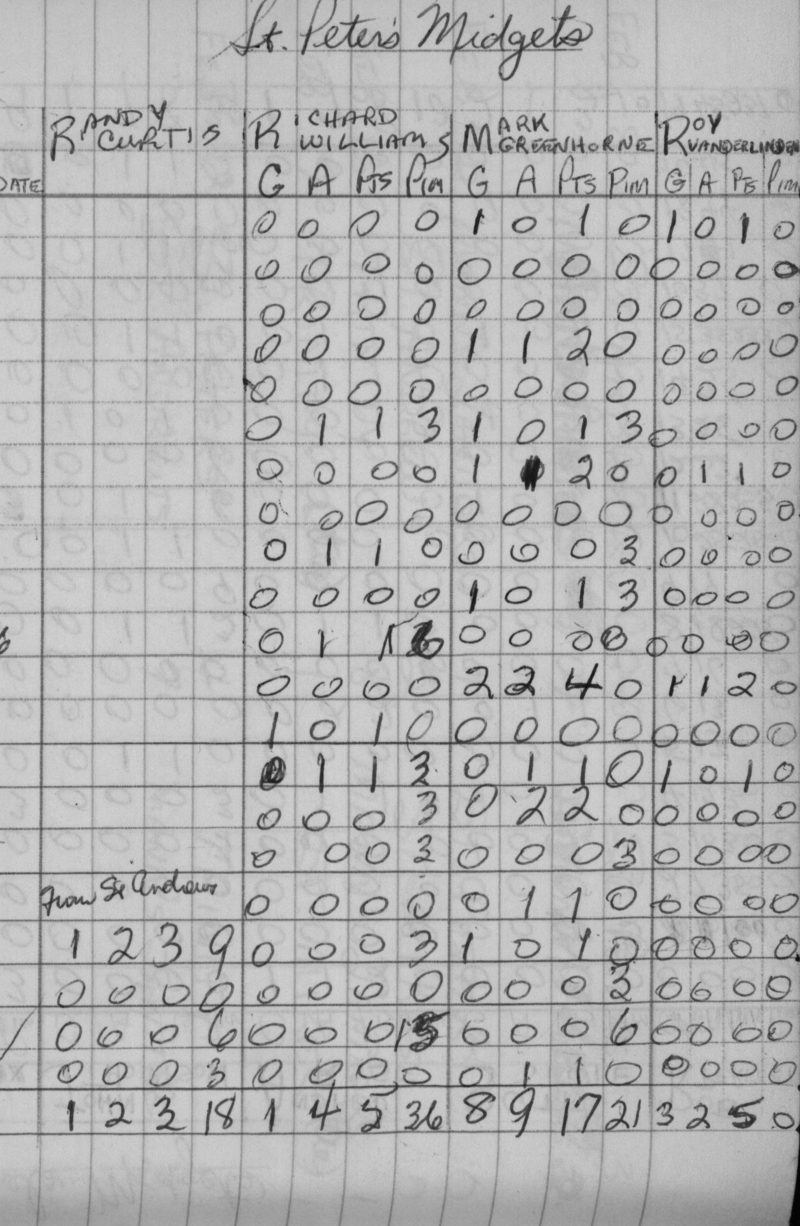 St. Peter's Midgets
RANDY CURTIS RICHARD WILLIAMS MARK GREENHORNE ROY VANDERLINDEN
DATE G A PTS PIM G A PTS PIM G A PTS PIM
0 0 0 0 1 0 1 0 1 0 1 0
0 0 0 0 0 0 0 0 0 0 0 0
0 0 0 0 0 0 0 0 0 0 0 0
0 0 0 0 1 1 2 0 0 0 0 0
0 0 0 0 0 0 0 0 0 0 0 0
0 1 1 3 1 0 1 3 0 0 0 0
0 0 0 0 1 2 0 0 1 1 0
0 0 0 0 0 0 0 0 0 0 0 0
0 1 1 0 0 0 0 3 0 0 0 0
0 0 0 0 1 0 1 3 0 0 0 0
0 1 1 0 0 0 0 0 0 0 0
0 0 0 0 2 2 4 0 1 1 2 0
1 0 1 0 0 0 0 0 0 0 0 0
0 1 1 3 0 1 1 0 1 0 1 0
0 0 0 3 0 2 2 0 0 0 0 0
0 0 0 3 0 0 0 3 0 0 0 0
From St Andrews 0 0 0 0 0 1 1 0 0 0 0 0
1 2 3 9 0 0 0 3 1 0 1 0 0 0 0 0
0 0 0 0 0 0 0 0 0 0 0 3 0 0 0 0
0 0 0 6 0 0 0 15 0 0 0 6 0 0 0 0
0 0 0 3 0 0 0 0 0 1 1 0 0 0 0 0
1 2 3 18 1 4 5 36 8 9 17 21 3 2 5 0